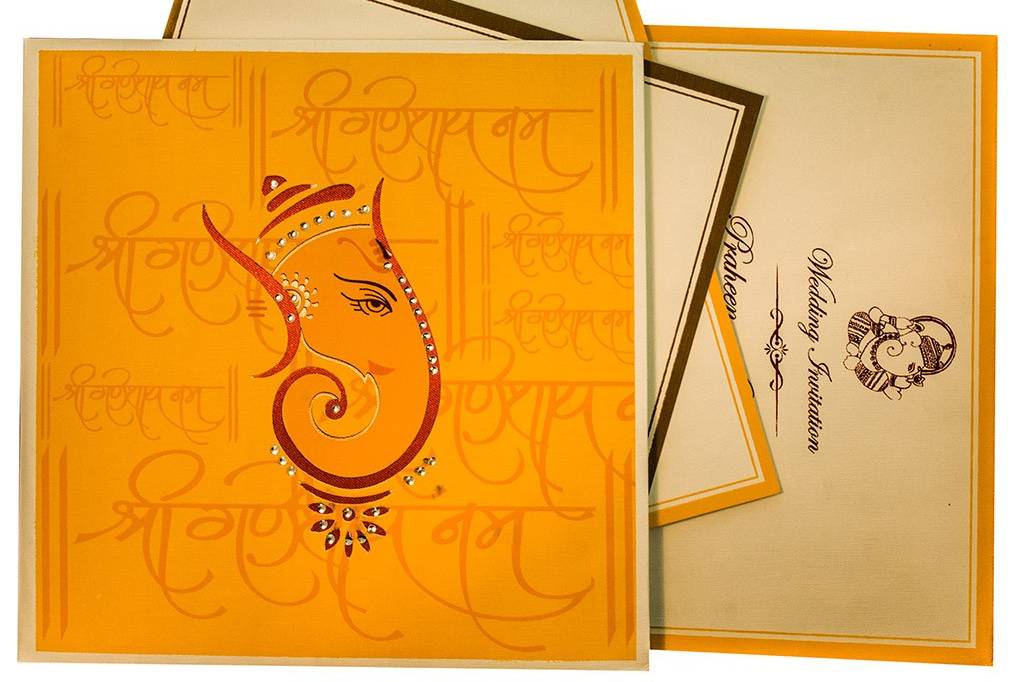 ॥ श्री गणेशाय नम ॥
॥ श्री गणेशाय नम ॥
॥ श्री गणे
॥ श्री गणेशाय नम
॥ श्री गणेशाय नम
॥ श्री गणेशाय नम ॥
गणेशाय
॥ श्री गणेशाय नम ॥
Praheen
Wedding Invitation